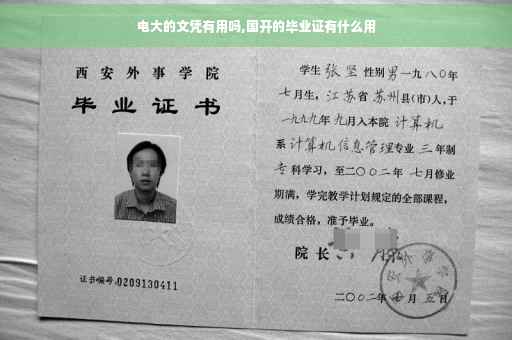 电大的文凭有用吗,国开的毕业证有什么用
西安外事学院
毕业证书
证书编号:0209130411
学生 张坚 性别 男 一九八〇年
七月生, 江苏省 苏州县(市)人,于
一九九九年 九月入本院 计算机
系 计算机信息管理专业 三 年制
专 科学习, 至二〇〇二年 七月修业
期满, 学完教学计划规定的全部课程,
成绩合格, 准予毕业。
院长
二〇〇二年 月 五日